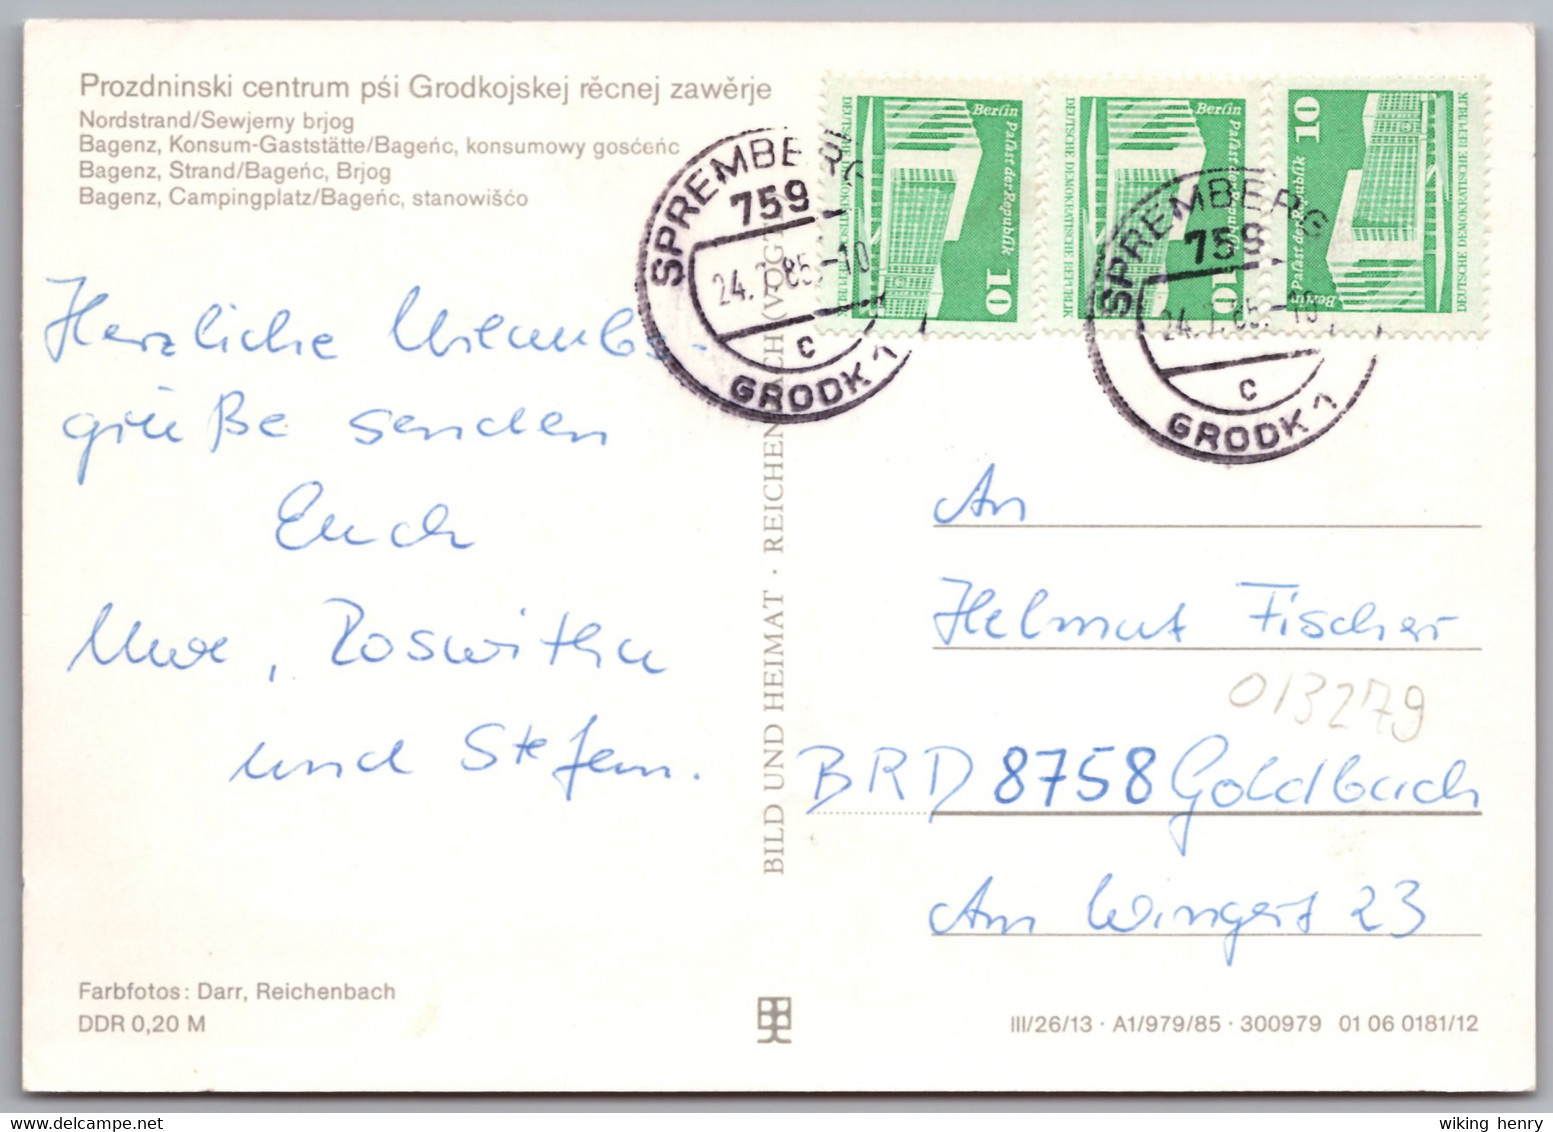 Prozdninski centrum pśi Grodkojskej rěcnej zawěrje
Nordstrand/Sewjerny brjog
Bagenz, Konsum-Gaststätte/Bageńc, konsumowy gosćeńc
Bagenz, Strand/Bageńc, Brjog
Bagenz, Campingplatz/Bageńc, stanowišćo
SPREMBERG
759
24.7.85.-10
c
GRODK 1
Berlin Palast der Republik
10
DEUTSCHE DEMOKRATISCHE REPUBLIK
Berlin Palast der Republik
10
DEUTSCHE DEMOKRATISCHE REPUBLIK
10
Berlin Palast der Republik
DEUTSCHE DEMOKRATISCHE REPUBLIK
SPREMBERG
759
24.7.85.-10
c
GRODK 1
Herzliche Urlaubs-
grüße senden
Euch
Uwe, Roswitha
und Stefan.
BILD UND HEIMAT · REICHENBACH (VOGTL
An
Helmut Fischer
013279
BRD 8758 Goldbach
Am Wingert 23
Farbfotos: Darr, Reichenbach
DDR 0,20 M
III/26/13 · A1/979/85 · 300979 01 06 0181/12
wiking henry